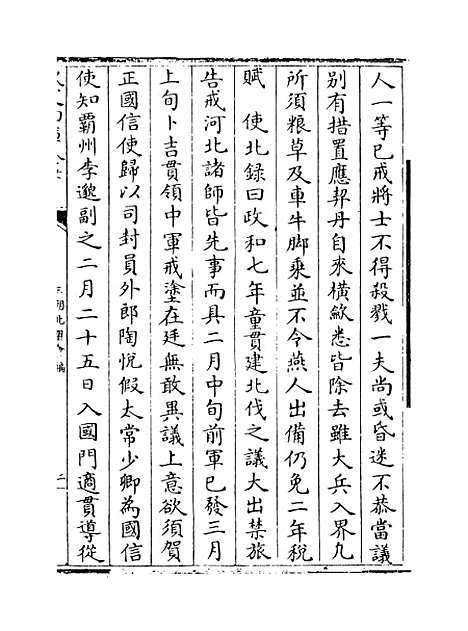 人一等已戒將士不得殺戮一夫尚或昏迷不恭當議
别有措置應契丹自來横歛悉皆除去雖大兵入界凡
所須粮草及車牛脚乘並不令燕人出備仍免二年稅
賦　使北録曰政和七年童貫建北伐之議大出禁旅
告戒河北諸師皆先事而具二月中旬前軍已發三月
上旬卜吉貫領中軍戒塗在廷無敢異議上意欲須賀
正國信使歸以司封員外郎陶悅假太常少卿為國信
使知霸州李邈副之二月二十五日入國門適貫導從
三朝北盟會編
二